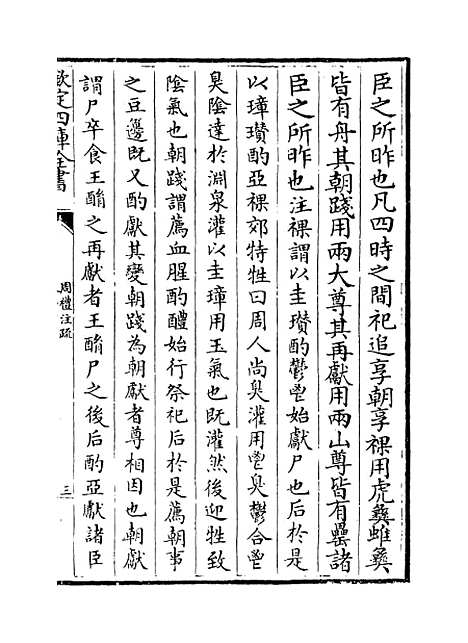 臣之所昨也凡四時之間祀追享朝享祼用虎彝蜼彝
皆有舟其朝踐用兩大尊其再獻用兩山尊皆有罍諸
臣之所昨也注祼謂以圭瓚酌鬱鬯始獻尸也后於是
以璋瓚酌亞祼郊特牲曰周人尚臭灌用鬯臭鬱合鬯
臭陰達於淵泉灌以圭璋用玉氣也既灌然後迎牲致
陰氣也朝踐謂薦血腥酌醴始行祭祀后於是薦朝事
之豆籩既又酌獻其變朝踐為朝獻者尊相因也朝獻
謂尸卒食王酳之再獻者王酳尸之後后酌亞獻諸臣
欽定四庫全書
周禮注疏
三